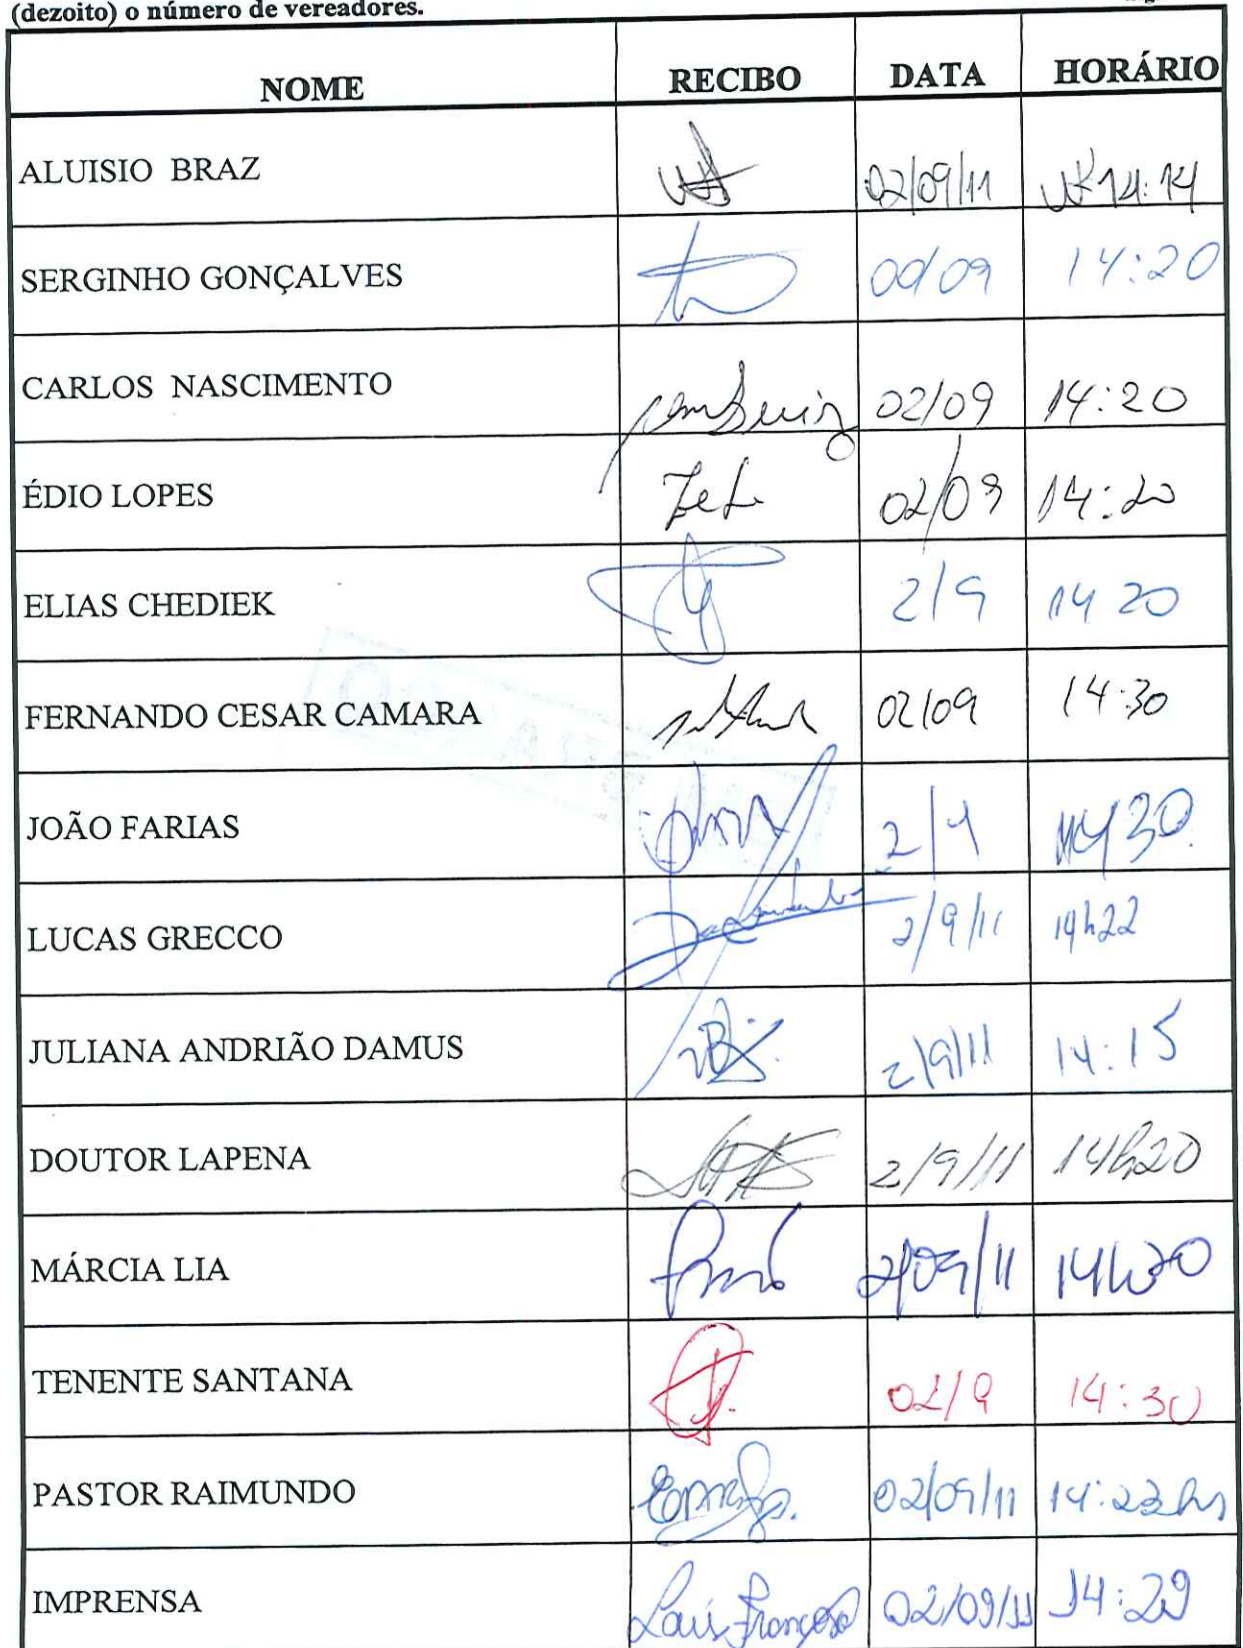 (dezoito) o número de vereadores.
NOME RECIBO DATA HORÁRIO
ALUISIO BRAZ 02/09/11 14:14
SERGINHO GONÇALVES 14:20
CARLOS NASCIMENTO 02/09 14:20
ÉDIO LOPES 02/09 14:20
ELIAS CHEDIEK 2/9 14 20
FERNANDO CESAR CAMARA 02/09 14:30
JOÃO FARIAS 2/9 14 30
LUCAS GRECCO 2/9/11 14h22
JULIANA ANDRIÃO DAMUS 2/9/11 14:15
DOUTOR LAPENA 2/9/11 14h20
MÁRCIA LIA 2/09/11 14h20
TENENTE SANTANA 02/9 14:30
PASTOR RAIMUNDO 02/09/11 14:23hs
IMPRENSA 02/09/11 14:29